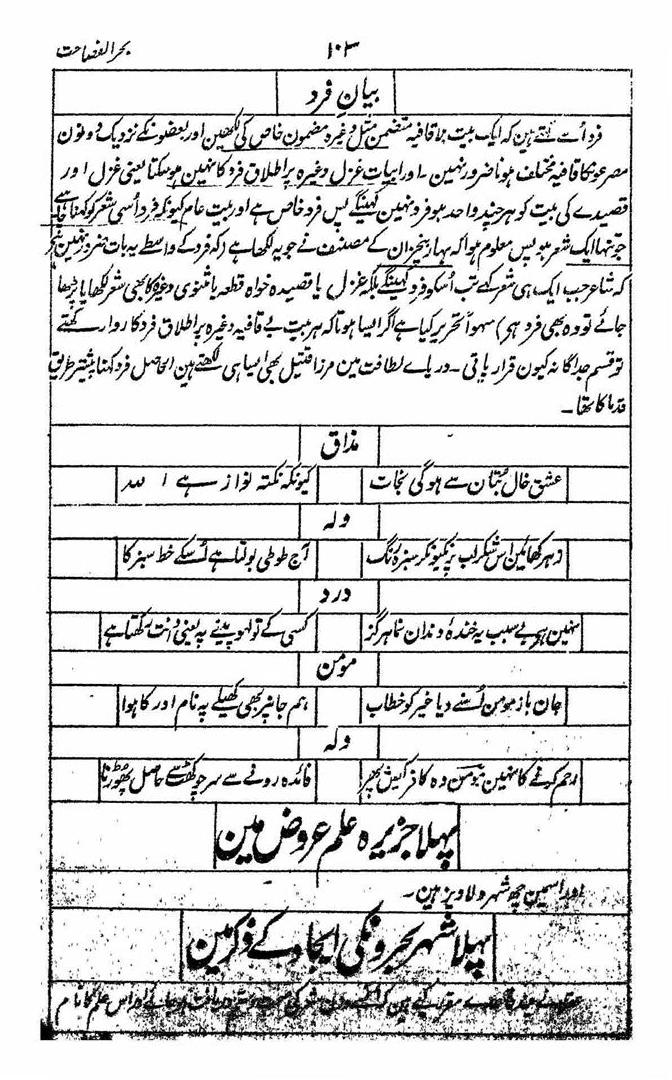 بحر الفصاحت
۱۰۳
بیانِ فرد
فرد اُسے کہتے ہین کہ ایک بیت بلا قافیہ متضمن مثل وغیرہ مضمون خاص کی لکھین اور بعضونکے نزدیک دونون
مصرعونکا قافیہ مختلف ہونا ضرور نہین ۔ اور ابیات غزل وغیرہ پر اطلاق فرد کا نہین ہوسکتا یعنی غزل اور
قصیدے کی بیت کو ہر چند واحد ہو فرد نہین کہینگے پس فرد خاص ہے اور بیت عام کیونکہ فرد اُسی شعر کو کہنا چاہیے
جو تنہا ایک شعر ہو پس معلوم ہوا کہ بہار بیخزان کے مصنف نے جو یہ لکھا ہے (کہ فرد کے واسطے یہ بات ضرور نہین ہے
کہ شاعر جب ایک ہی شعر کہے تب اُسکو فرد کہینگے بلکہ غزل یا قصیدہ خواہ قطعہ یا مثنوی وغیرہ کا بھی شعر لکھا یا پڑھا
جائے تو وہ بھی فرد ہی) سہواً تحریر کیا ہے اگر ایسا ہوتا کہ ہر بیت بے قافیہ وغیرہ پر اطلاق فرد کا روا رکھتے
تو قسم جداگانہ کیون قرار پاتی ۔ دریاے لطافت مین مرزا قتیل بھی ایسا ہی لکھتے ہین الحاصل فرد کہنا بیشتر طریق
قدما کا تھا ۔
مذاق
عشق خال بتان سے ہوگی نجات کیونکہ نکتہ نواز ہے اللہ
ولہ
زہر کھائین اس شکر لب پر نکیونکر سبزہ رنگ آج طوطی بولتا ہے اُسکے خط سبز کا
درد
نہین ہے بے سبب یہ خندۂ دندان نما ہرگز کسی کے تو لہو پینے پہ یعنی دانت رکھتا ہے
مومن
جان باز مومن اُسنے دیا غیر کو خطاب ہم جانپر بھی کھیلے پہ نام اور کا ہوا
ولہ
رحم کرنے کا نہین مومن وہ کافر کیش پھر فائدہ رونے سے سر چوکھٹ سے حاصل پھوڑنا
پہلا جزیرہ علم عروض مین
اور اسمین چھ شہر دلاویز ہین ۔
پہلا شہر بحرونکی ایجاد کے ذکر مین
اور اس علم کا نام